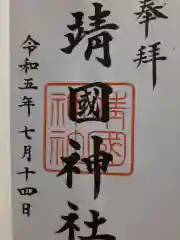 奉拝
靖國神社
令和五年七月十四日
靖国
神社